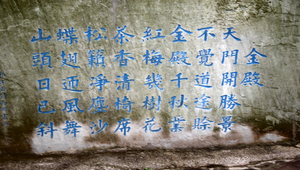 金殿
天門開勝景
不覺道途賒
金殿千秋業
紅梅幾樹花
茶香清椅席
松籟淨沙
蝶迴風舞
山頭日已斜